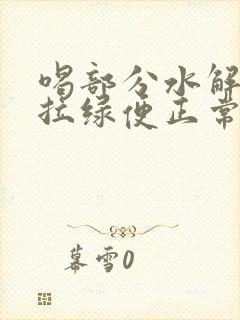 喝部分水解
拉绿便正常
幕雪0